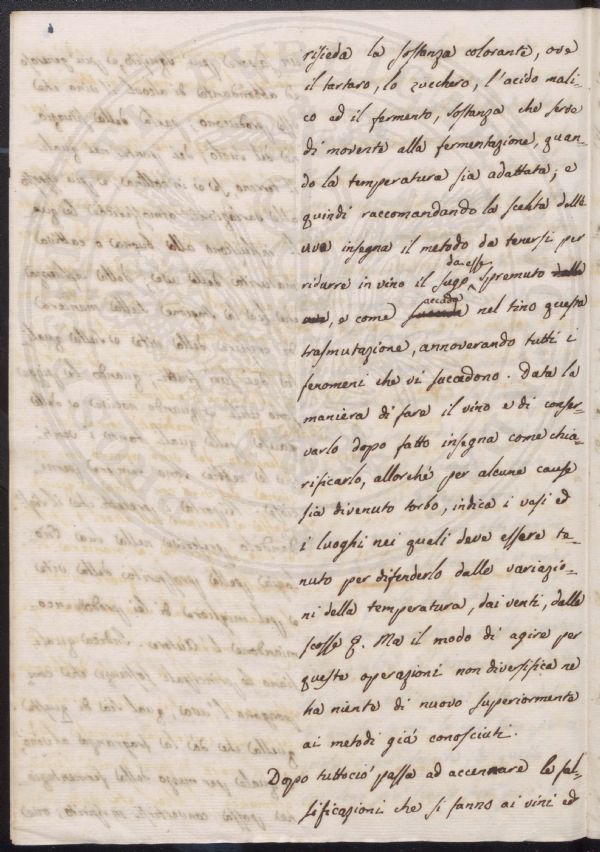 risieda la sostanza colorante, ove
il tartaro, lo zucchero, l'acido mali-
co ed il fermento, sostanza che serve
di movente alla fermentazione, quan-
do la temperatura sia adattata; e
quindi raccomandando la scelta delle
uve insegna il metodo da tenersi per
da esse
ridurre in vino il sugo spremuto dalle
accada
uve, e come succeda nel tino questa
trasmutazione, annoverando tutti i
fenomeni che vi succedono. Data la
maniera di fare il vino e di conser-
varlo dopo fatto insegna come chia-
rificarlo, allorché per alcune cause
sia divenuto torbo, indica i vasi ed
i luoghi nei quali deve essere te-
nuto per difenderlo dalle variazio-
ni della temperatura, dai venti, dalle
scosse &. Ma il modo di agire per
queste operazioni non diversifica ne
ha niente di nuovo superiormente
ai metodi giá conosciuti.
Dopo tuttociò passa ad accennare le fal-
sificazioni che si fanno ai vini ed